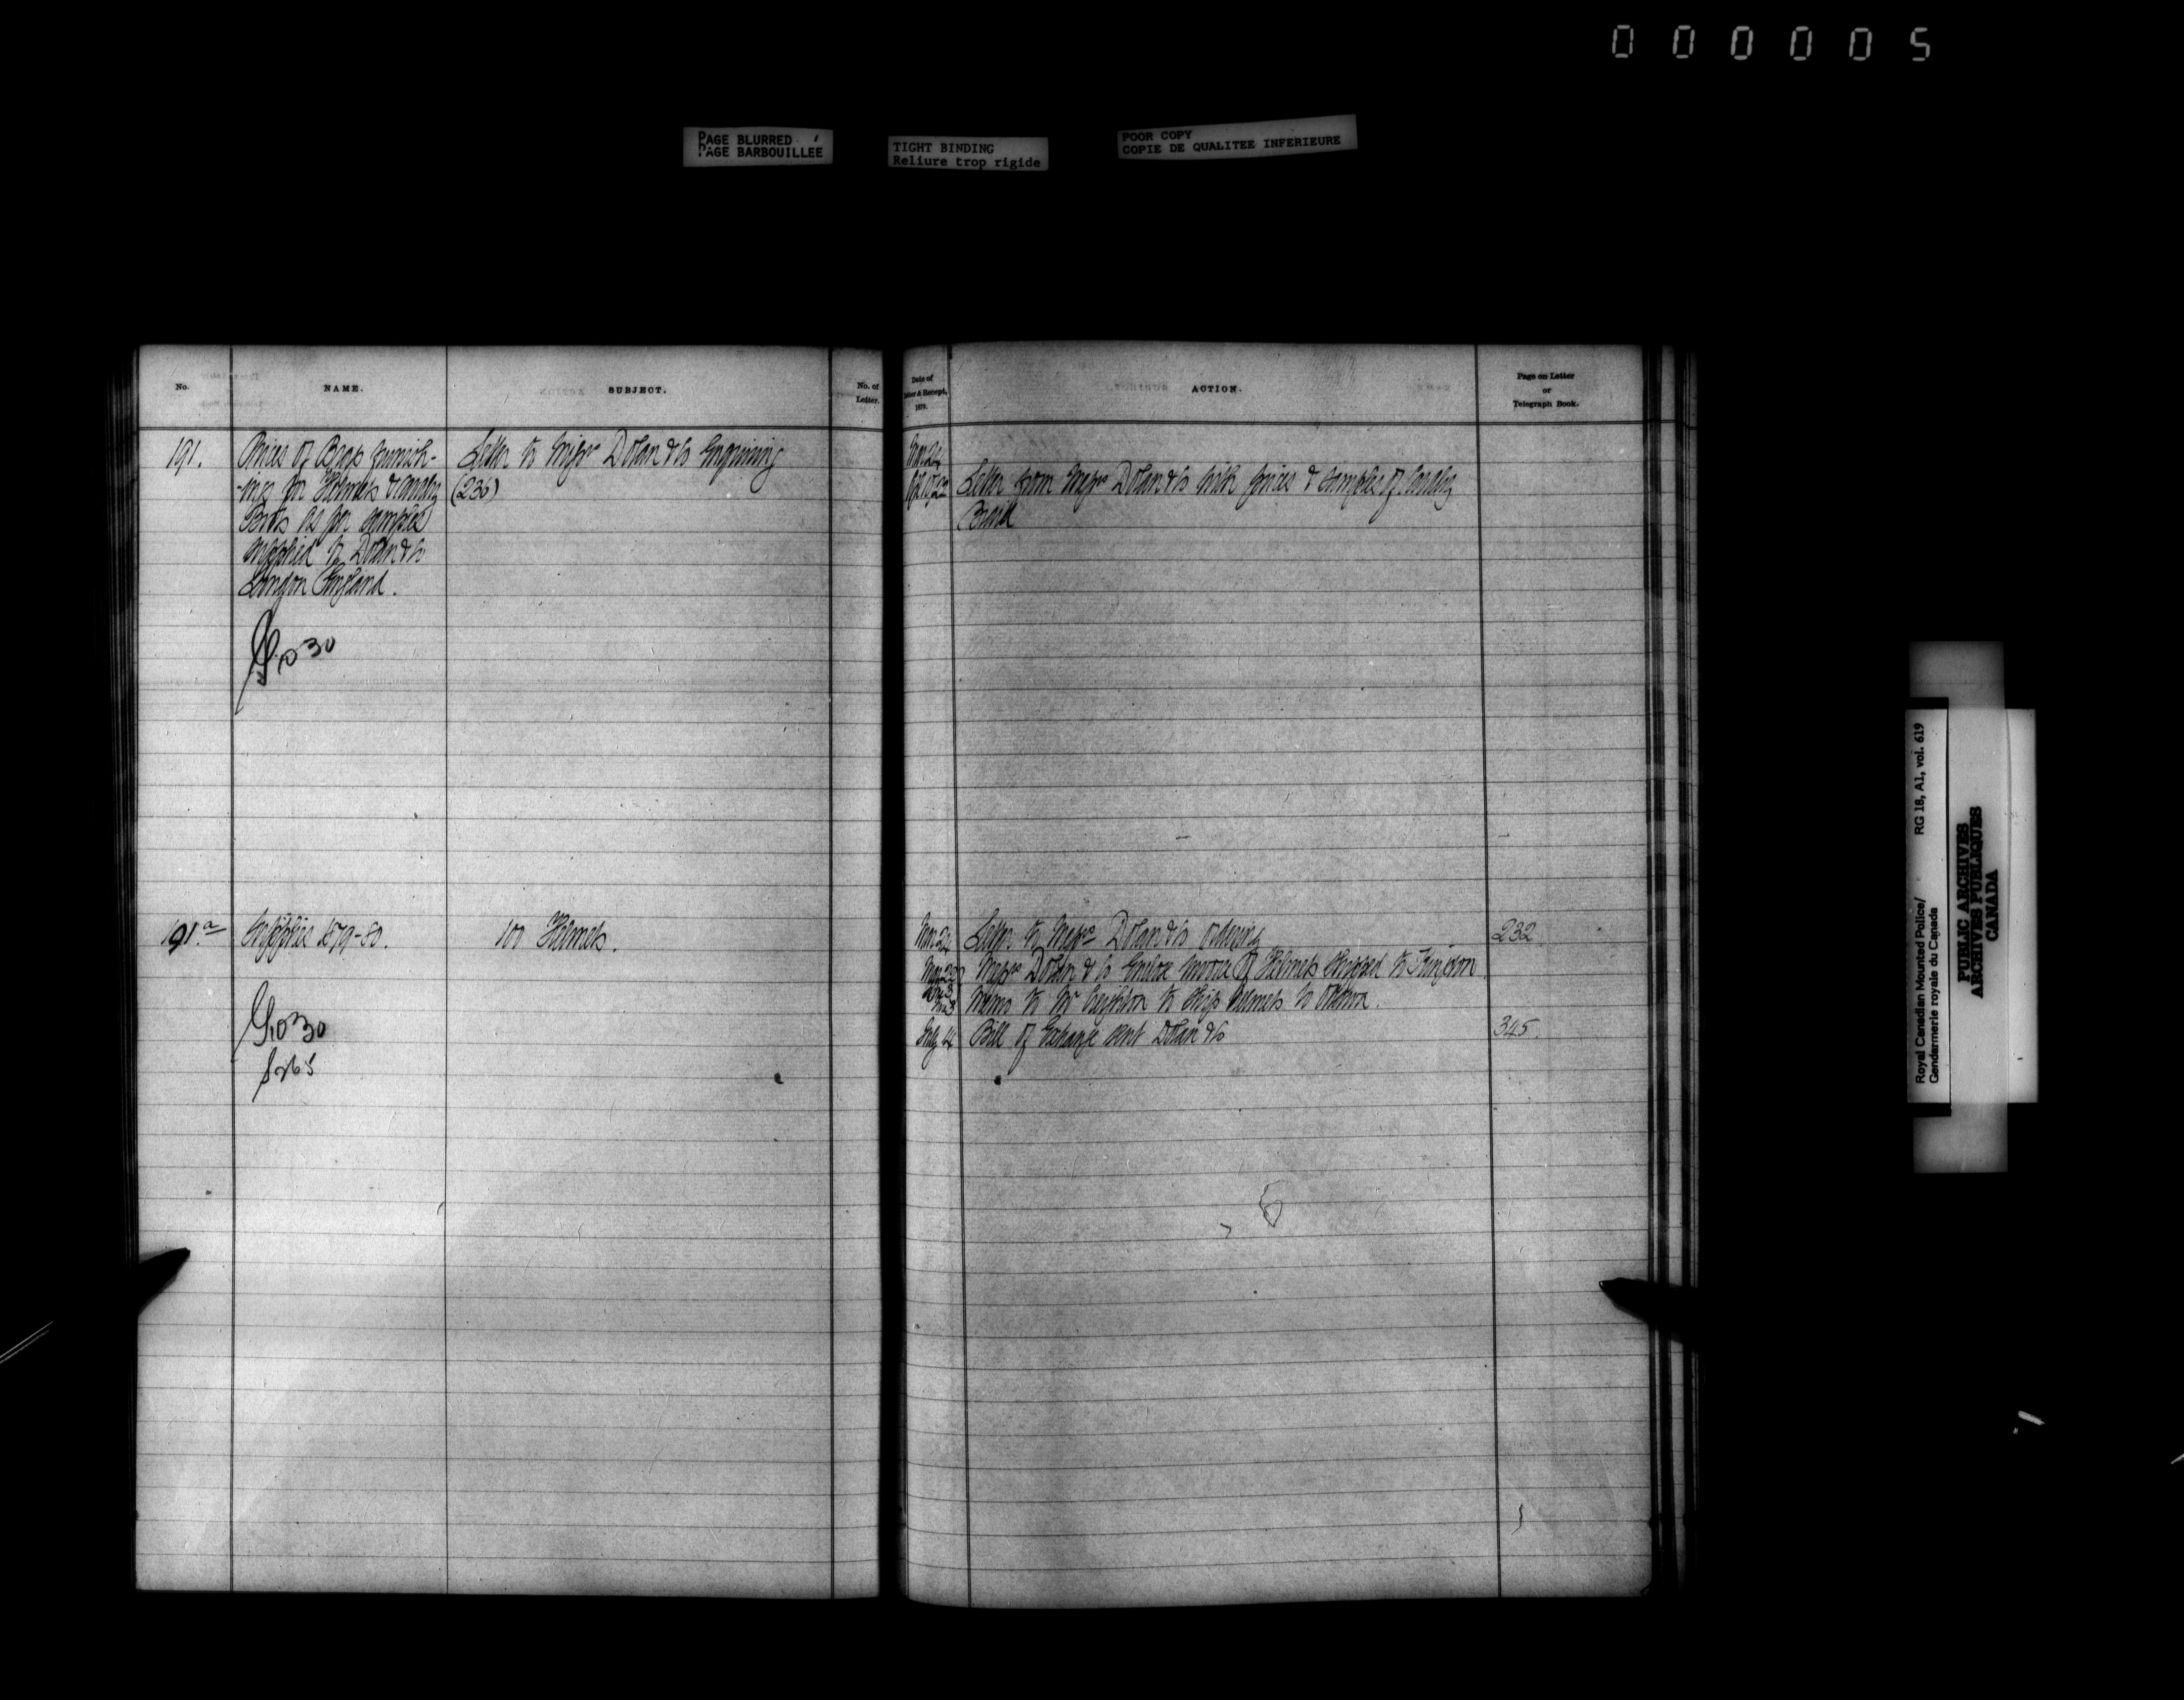 000005
PAGE BLURRED
PAGE BARBOUILLEE
TIGHT BINDING
Reliure trop rigide
POOR COPY
COPIE DE QUALITEE INFERIEURE
No.
NAME.
SUBJECT.
No. of
Letter.
Date of
Letter & Receipt,
1879.
ACTION.
Page on Letter
or
Telegraph Book.
191.
Prices of Brass furnish-
-ings for Helmets &
as per samples
supplied to Dolan & Co
London England.
30
Letter to Messrs Dolan & Co Enquiring
(236)
Mar 24
Letter from Messrs Dolan & Co with prices & samples of
Braid
191.a
Supplies 1879-80.
30
100 Helmets.
Mar 24
Letter to Messrs Dolan & Co ordering
232
Messrs Dolan & Co Enclose Invoice of Helmets shipped to
Memo to Mr to ship Helmets to Ottawa.
July 4
Bill of Exchange sent Dolan & Co
345.
Royal Canadian Mounted Police/
Gendarmerie royale du Canada
RG 18, A1, vol. 619
PUBLIC ARCHIVES
ARCHIVES PUBLIQUES
CANADA